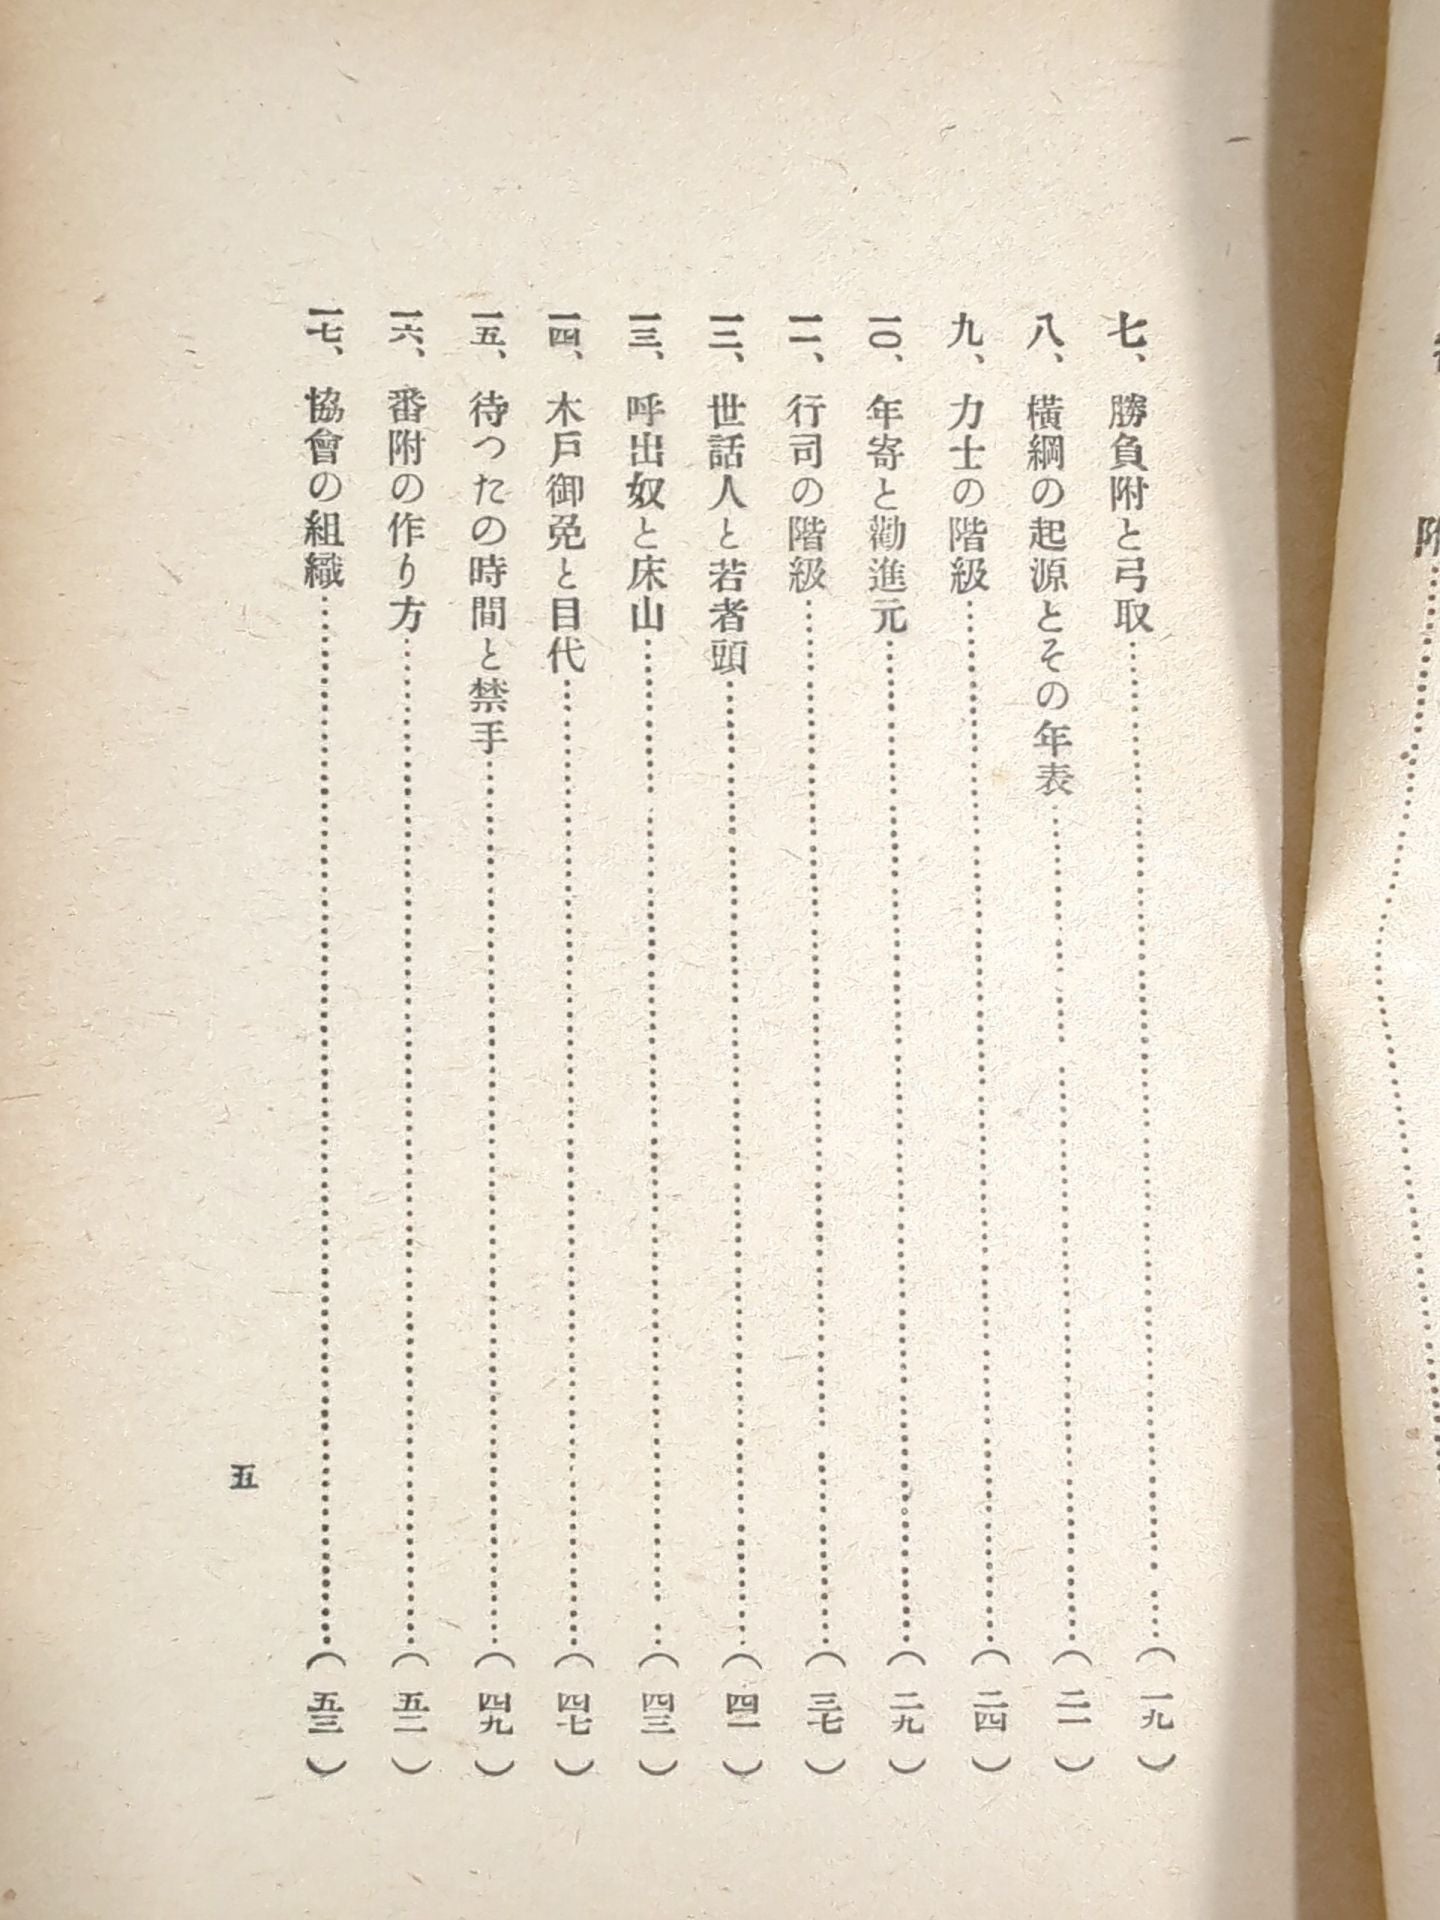 七、勝負附と弓取……(一九)
八、橫綱の起源とその年表……(二一)
九、力士の階級……(二四)
一〇、年寄と勸進元……(二九)
一一、行司の階級……(三七)
一二、世話人と若者頭……(四一)
一三、呼出奴と床山……(四三)
一四、木戶御免と目代……(四七)
一五、待つたの時間と禁手……(四九)
一六、番附の作り方……(五二)
一七、協會の組織……(五三)
五